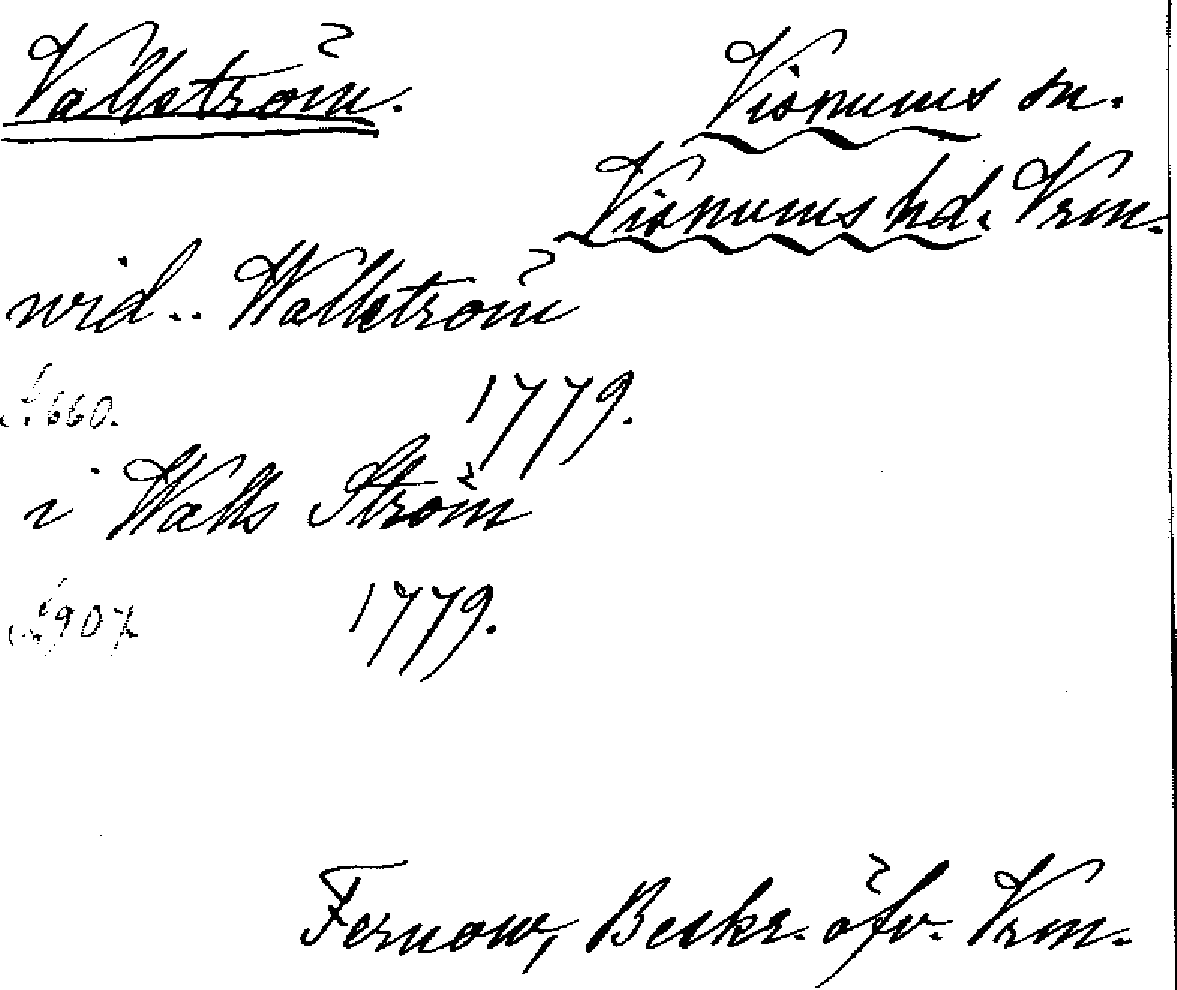 Vallström.
Visnums sn.
Visnums hd. Vrm.
wid.. Wallström
S. 660. 1779.
i Walls Ström
S. 907. 1779.
Fernow, Beskr. öfv. Vrm.